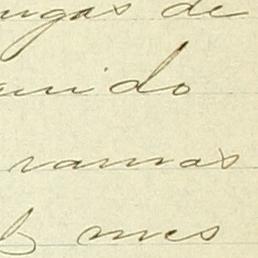 ugas de
unido
ramas
mes